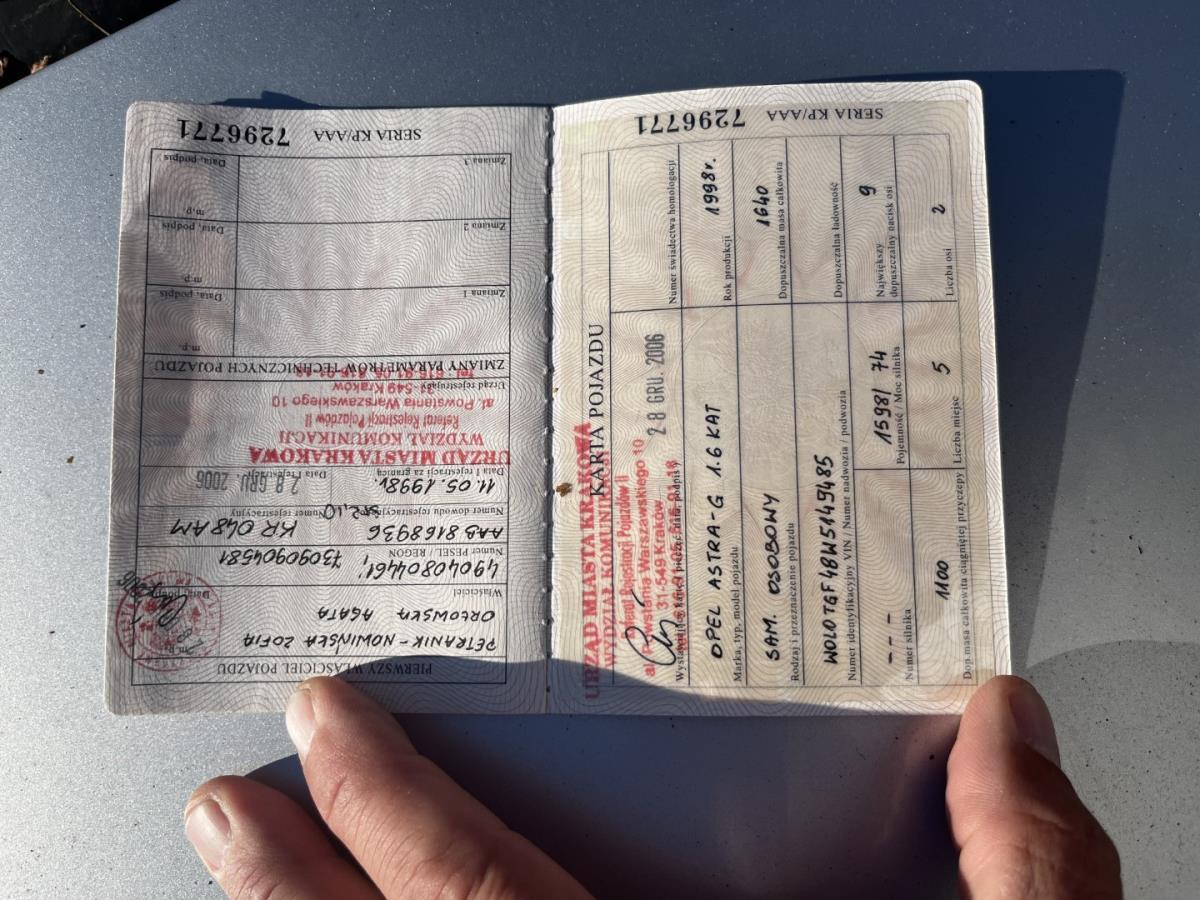 SERIA KP/AAA 7296771
PIERWSZY WŁAŚCICIEL POJAZDU
PETRANIK-NOWIŃSKA ZOFIA
ORŁOWSKA AGATA
Właściciel
Data, podpis
49040804461, 73090904581
Numer PESEL / REGON
AAB8168936 KR 048AM
Numer dowodu rejestracyjnego Numer rejestracyjny
11.05.1998r. 28 GRU. 2006
Data I rejestracji za granicą Data I rejestracji
URZĄD MIASTA KRAKOWA
WYDZIAŁ KOMUNIKACJI
Referat Rejestracji Pojazdów II
al. Powstania Warszawskiego 10
31-549 Kraków
Urząd rejestrujący
ZMIANY PARAMETRÓW TECHNICZNYCH POJAZDU
m.p.
Zmiana 1 Data, podpis
m.p.
Zmiana 2 Data, podpis
m.p.
Zmiana 3 Data, podpis
SERIA KP/AAA 7296771
KARTA POJAZDU
URZĄD MIASTA KRAKOWA
WYDZIAŁ KOMUNIKACJI
Referat Rejestracji Pojazdów II
al. Powstania Warszawskiego 10
31-549 Kraków
28 GRU. 2006
Numer świadectwa homologacji
OPEL ASTRA-G 1.6 KAT 1998r.
Marka, typ, model pojazdu Rok produkcji
SAM. OSOBOWY 1640
Rodzaj i przeznaczenie pojazdu Dopuszczalna masa całkowita
WOLOTGF48W5149485
Numer identyfikacyjny VIN / Numer nadwozia / podwozia Dopuszczalna ładowność
--- 1598/ 74 9
Numer silnika Pojemność / Moc silnika Największy dopuszczalny nacisk osi
1100 5 2
Dop. masa całkowita ciągniętej przyczepy Liczba miejsc Liczba osi